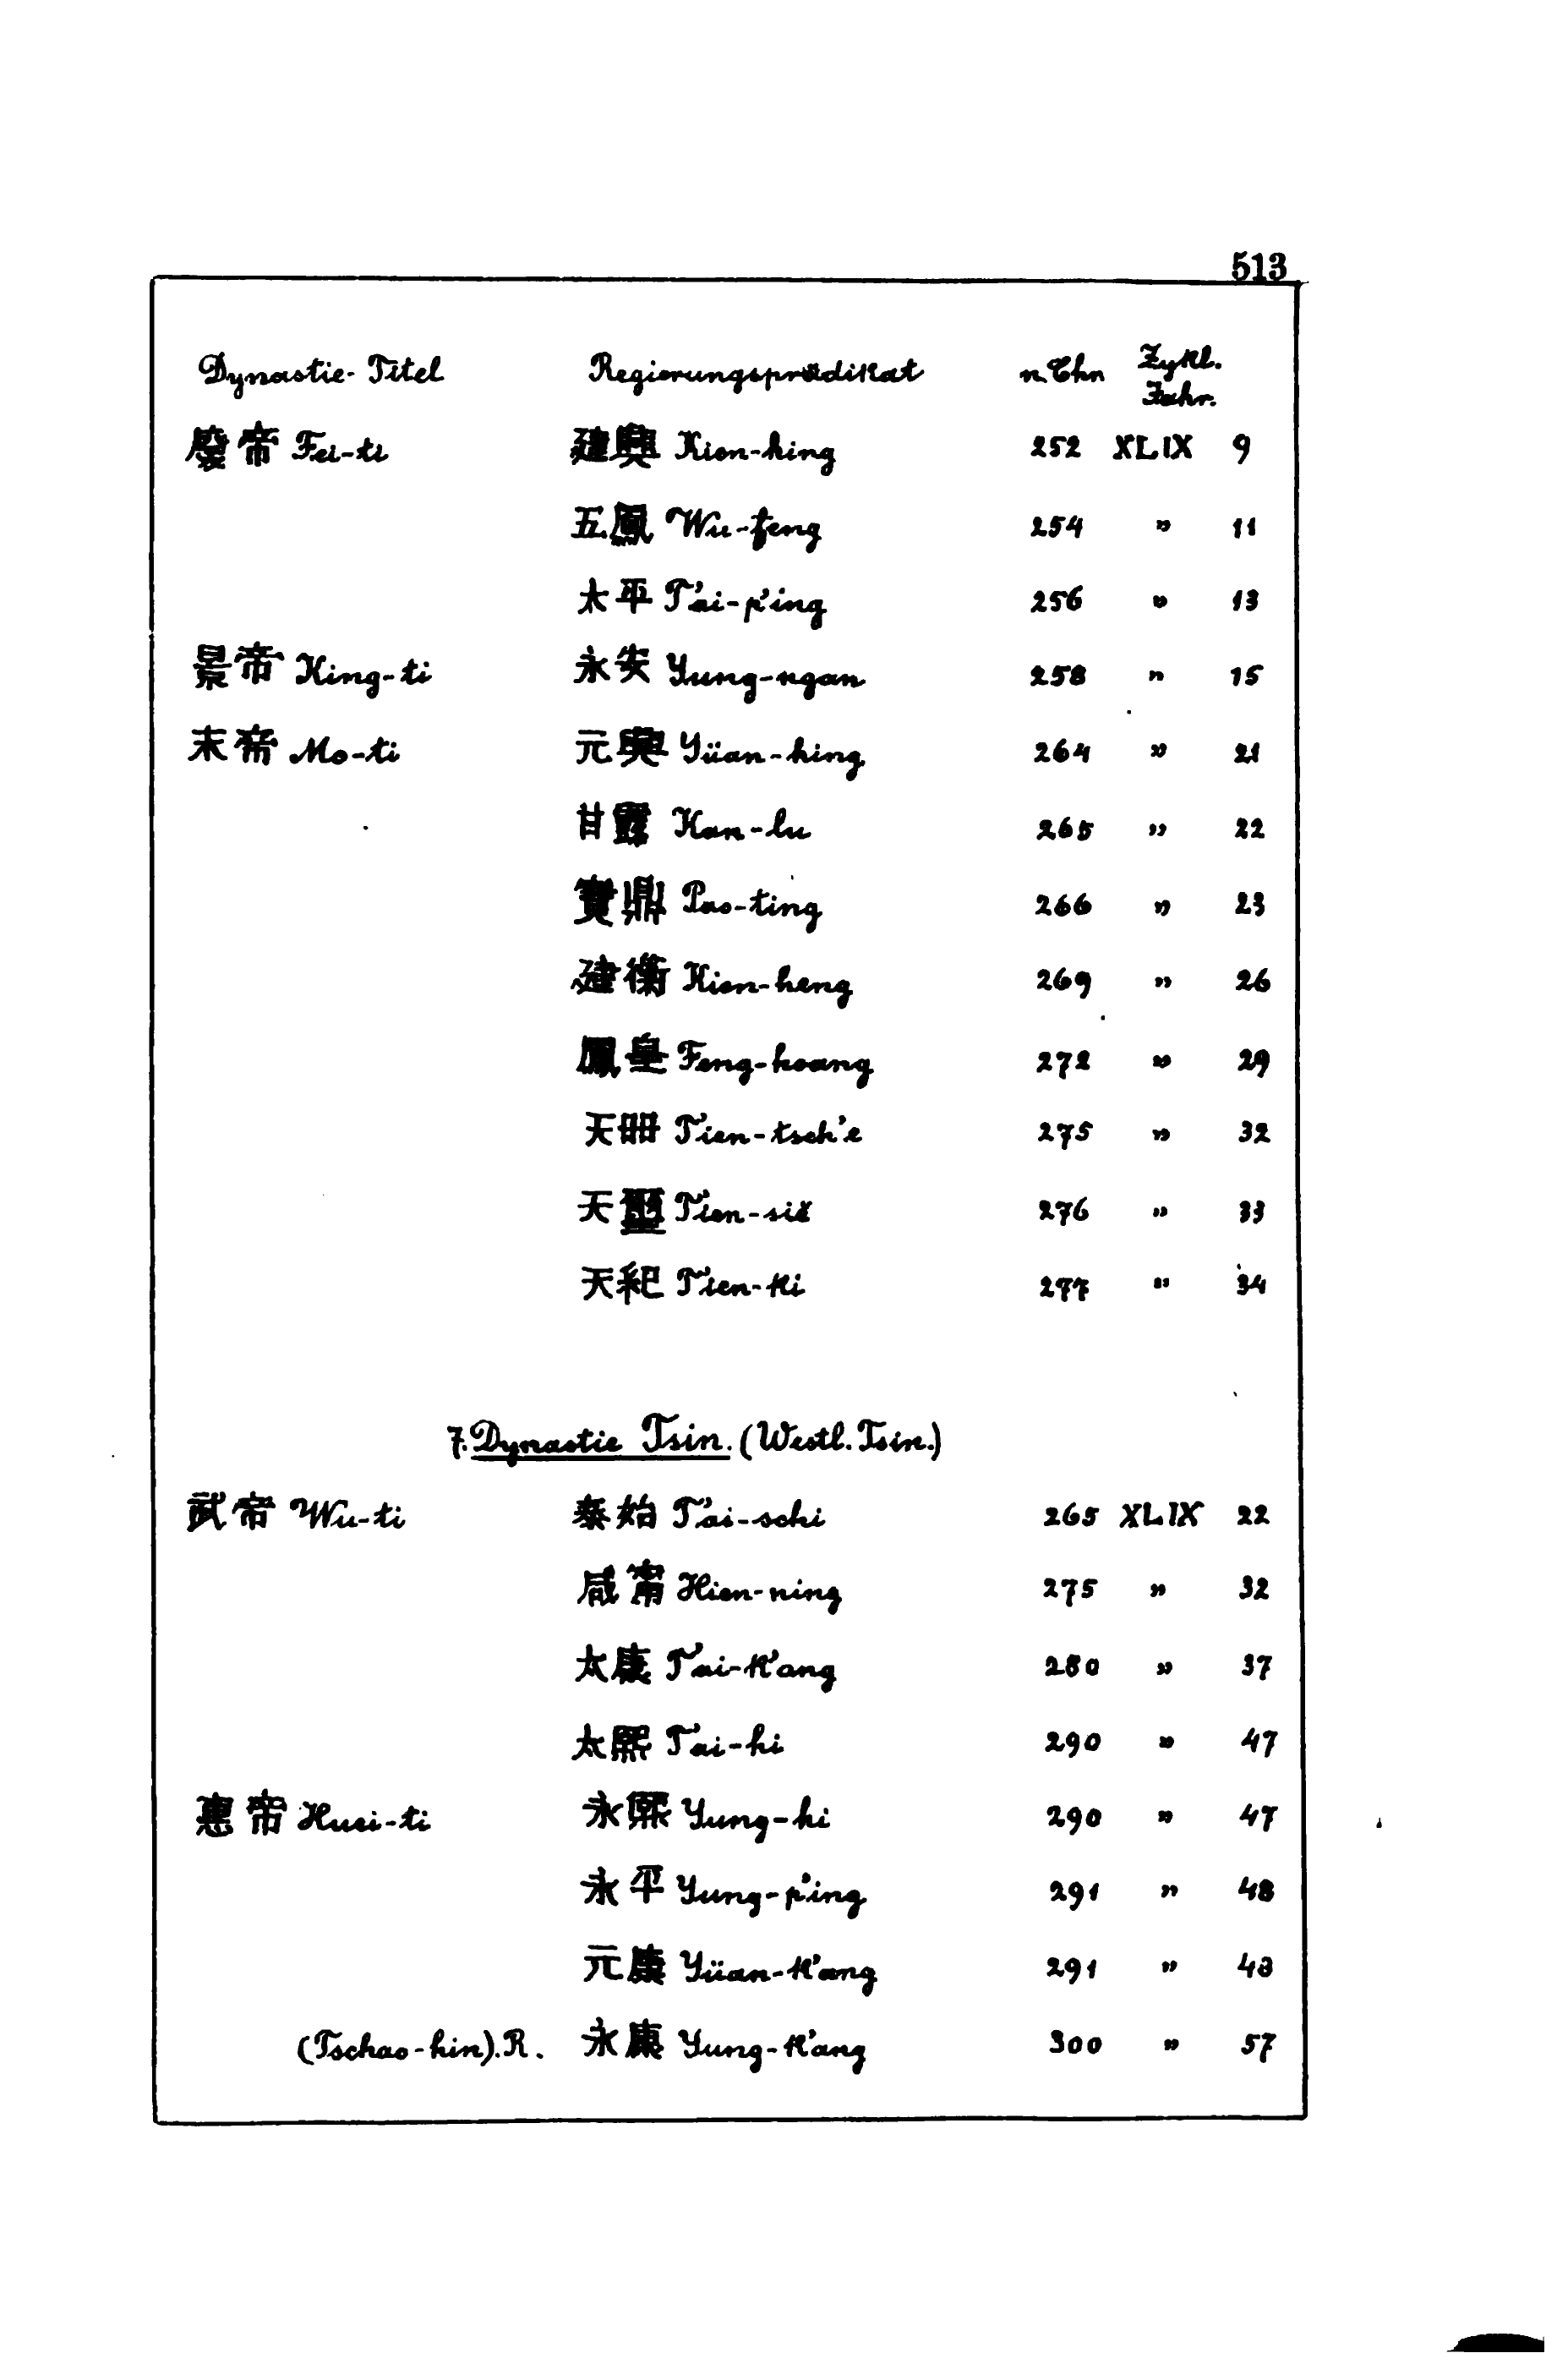 513
Dynastie-Titel Regierungsprädikat n. Chr. Zykl. Jahr.
廢帝 Fei-ti 建興 Kien-hing 252 XLIX 9
五鳳 Wu-feng 254 " 11
太平 T'ai-p'ing 256 " 13
景帝 King-ti 永安 Yung-ngan 258 " 15
末帝 Mo-ti 元興 Yüan-hing 264 " 21
甘露 Kan-lu 265 " 22
寶鼎 Pao-ting 266 " 23
建衡 Kien-heng 269 " 26
鳳皇 Feng-hoang 272 " 29
天冊 T'ien-tsch'e 275 " 32
天璽 T'ien-si 276 " 33
天紀 T'ien-ki 277 " 34
7. Dynastie Tsin. (Westl. Tsin.)
武帝 Wu-ti 泰始 T'ai-schi 265 XLIX 22
咸甯 Hien-ning 275 " 32
太康 T'ai-k'ang 280 " 37
太熙 T'ai-hi 290 " 47
惠帝 Huei-ti 永熙 Yung-hi 290 " 47
永平 Yung-p'ing 291 " 48
元康 Yüan-k'ang 291 " 48
(Tschao-hin). R. 永康 Yung-k'ang 300 " 57